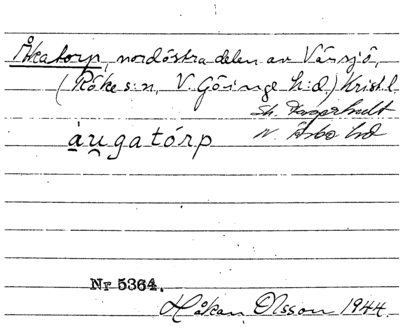 Åkatorp, nordöstra delen av Vårsjö,
(Röke s:n, V. Göinge h:d.) Kristl.
N. Åsbo hd
áu̯gatórp
Nr 5364.
Håkan Olsson 1944.